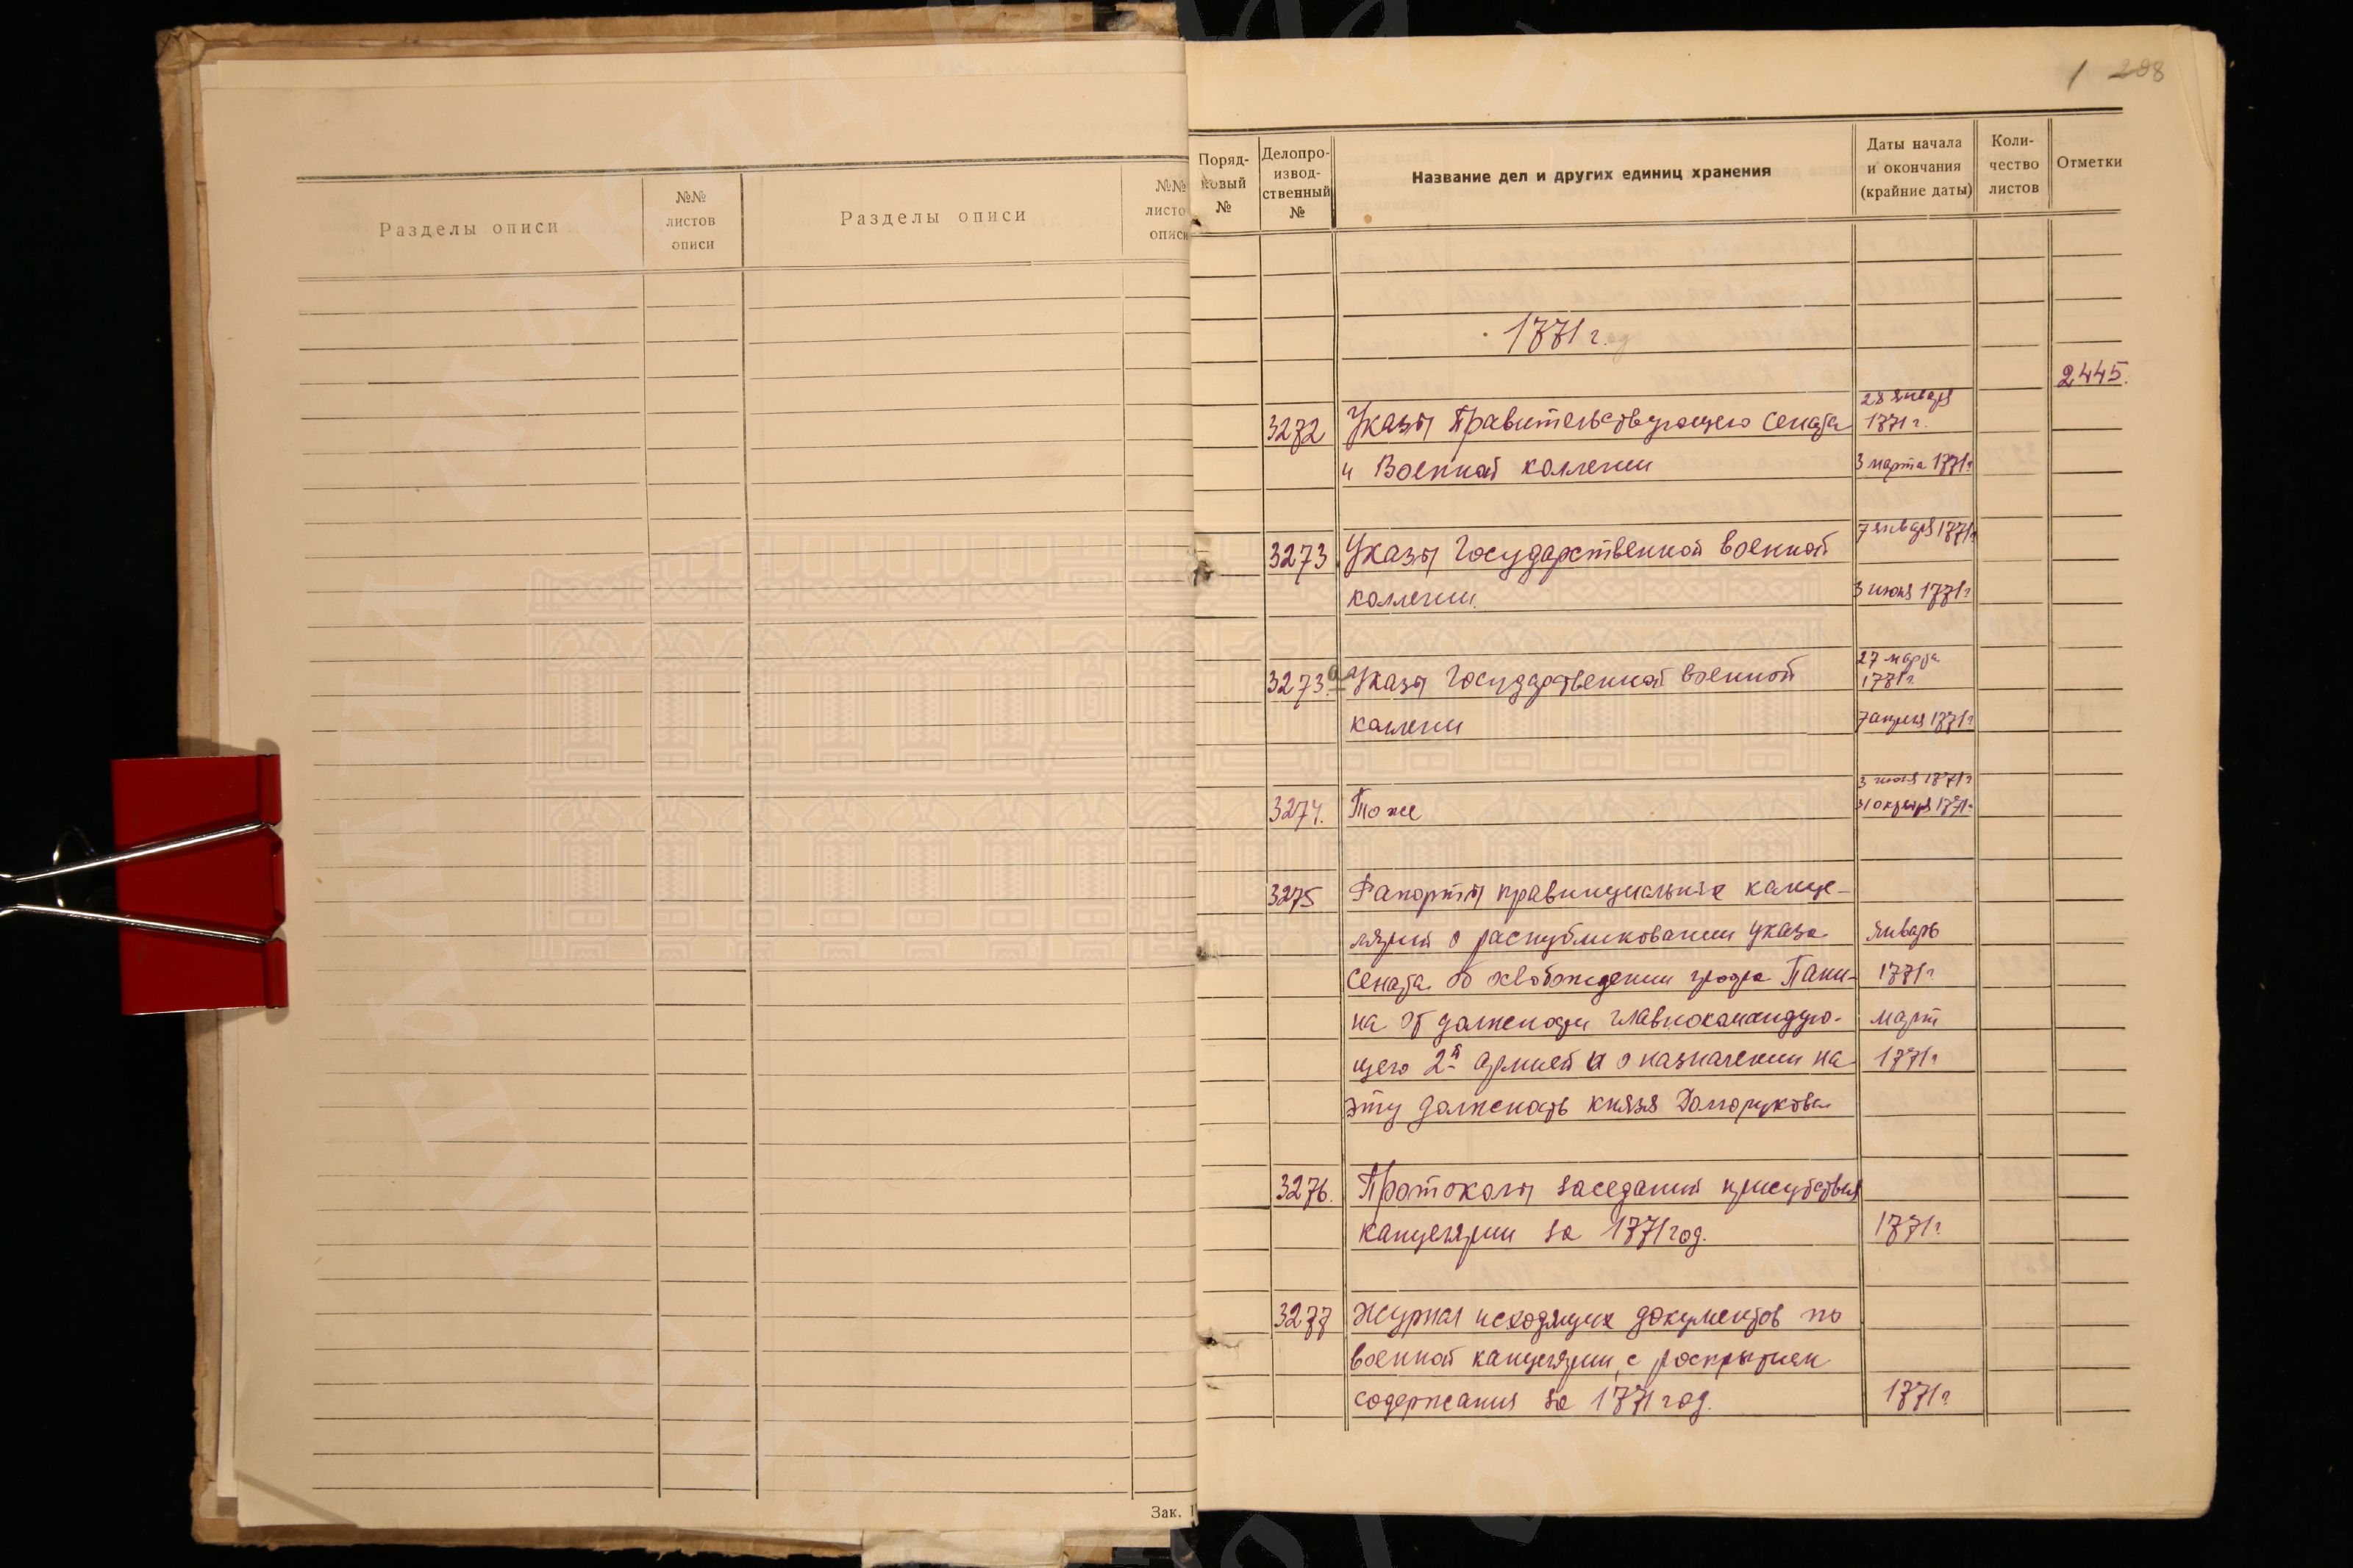 Разделы описи
№№ листов описи
Разделы описи
№№ листо описи
Зак. 1
1 208
Поряд-ковый №
Делопро-извод-ственный №
Название дел и других единиц хранения
Даты начала и окончания (крайние даты)
Коли-чество листов
Отметки
1771 г.
2445.
28 января
3272 Указы Правительствующего Сената 1771 г.
и Военной коллегии 3 марта 1771 г.
7 января 1771 г.
3273 Указы Государственной военной
коллегии. 3 июня 1771 г.
27 марта
3273.а Указы Государственной военной 1771 г.
коллегии 7 апреля 1771 г.
3 июля 1771 г.
3274. То же 31 октября 1771 г.
3275 Рапорты правинциальных канце-
лярий о распубликовании указа январь
Сената об освобождении графа Пани- 1771 г.
на от должности главнокомандую- март
щего 2й армией и о назначении на 1771 г.
эту должность князя Долгорукова
3276. Протоколы заседаний присутствия
канцелярии за 1771 год. 1771 г.
3277 Журнал исходящих документов по
военной канцелярии, с раскрытием
содержания за 1771 год. 1771 г.